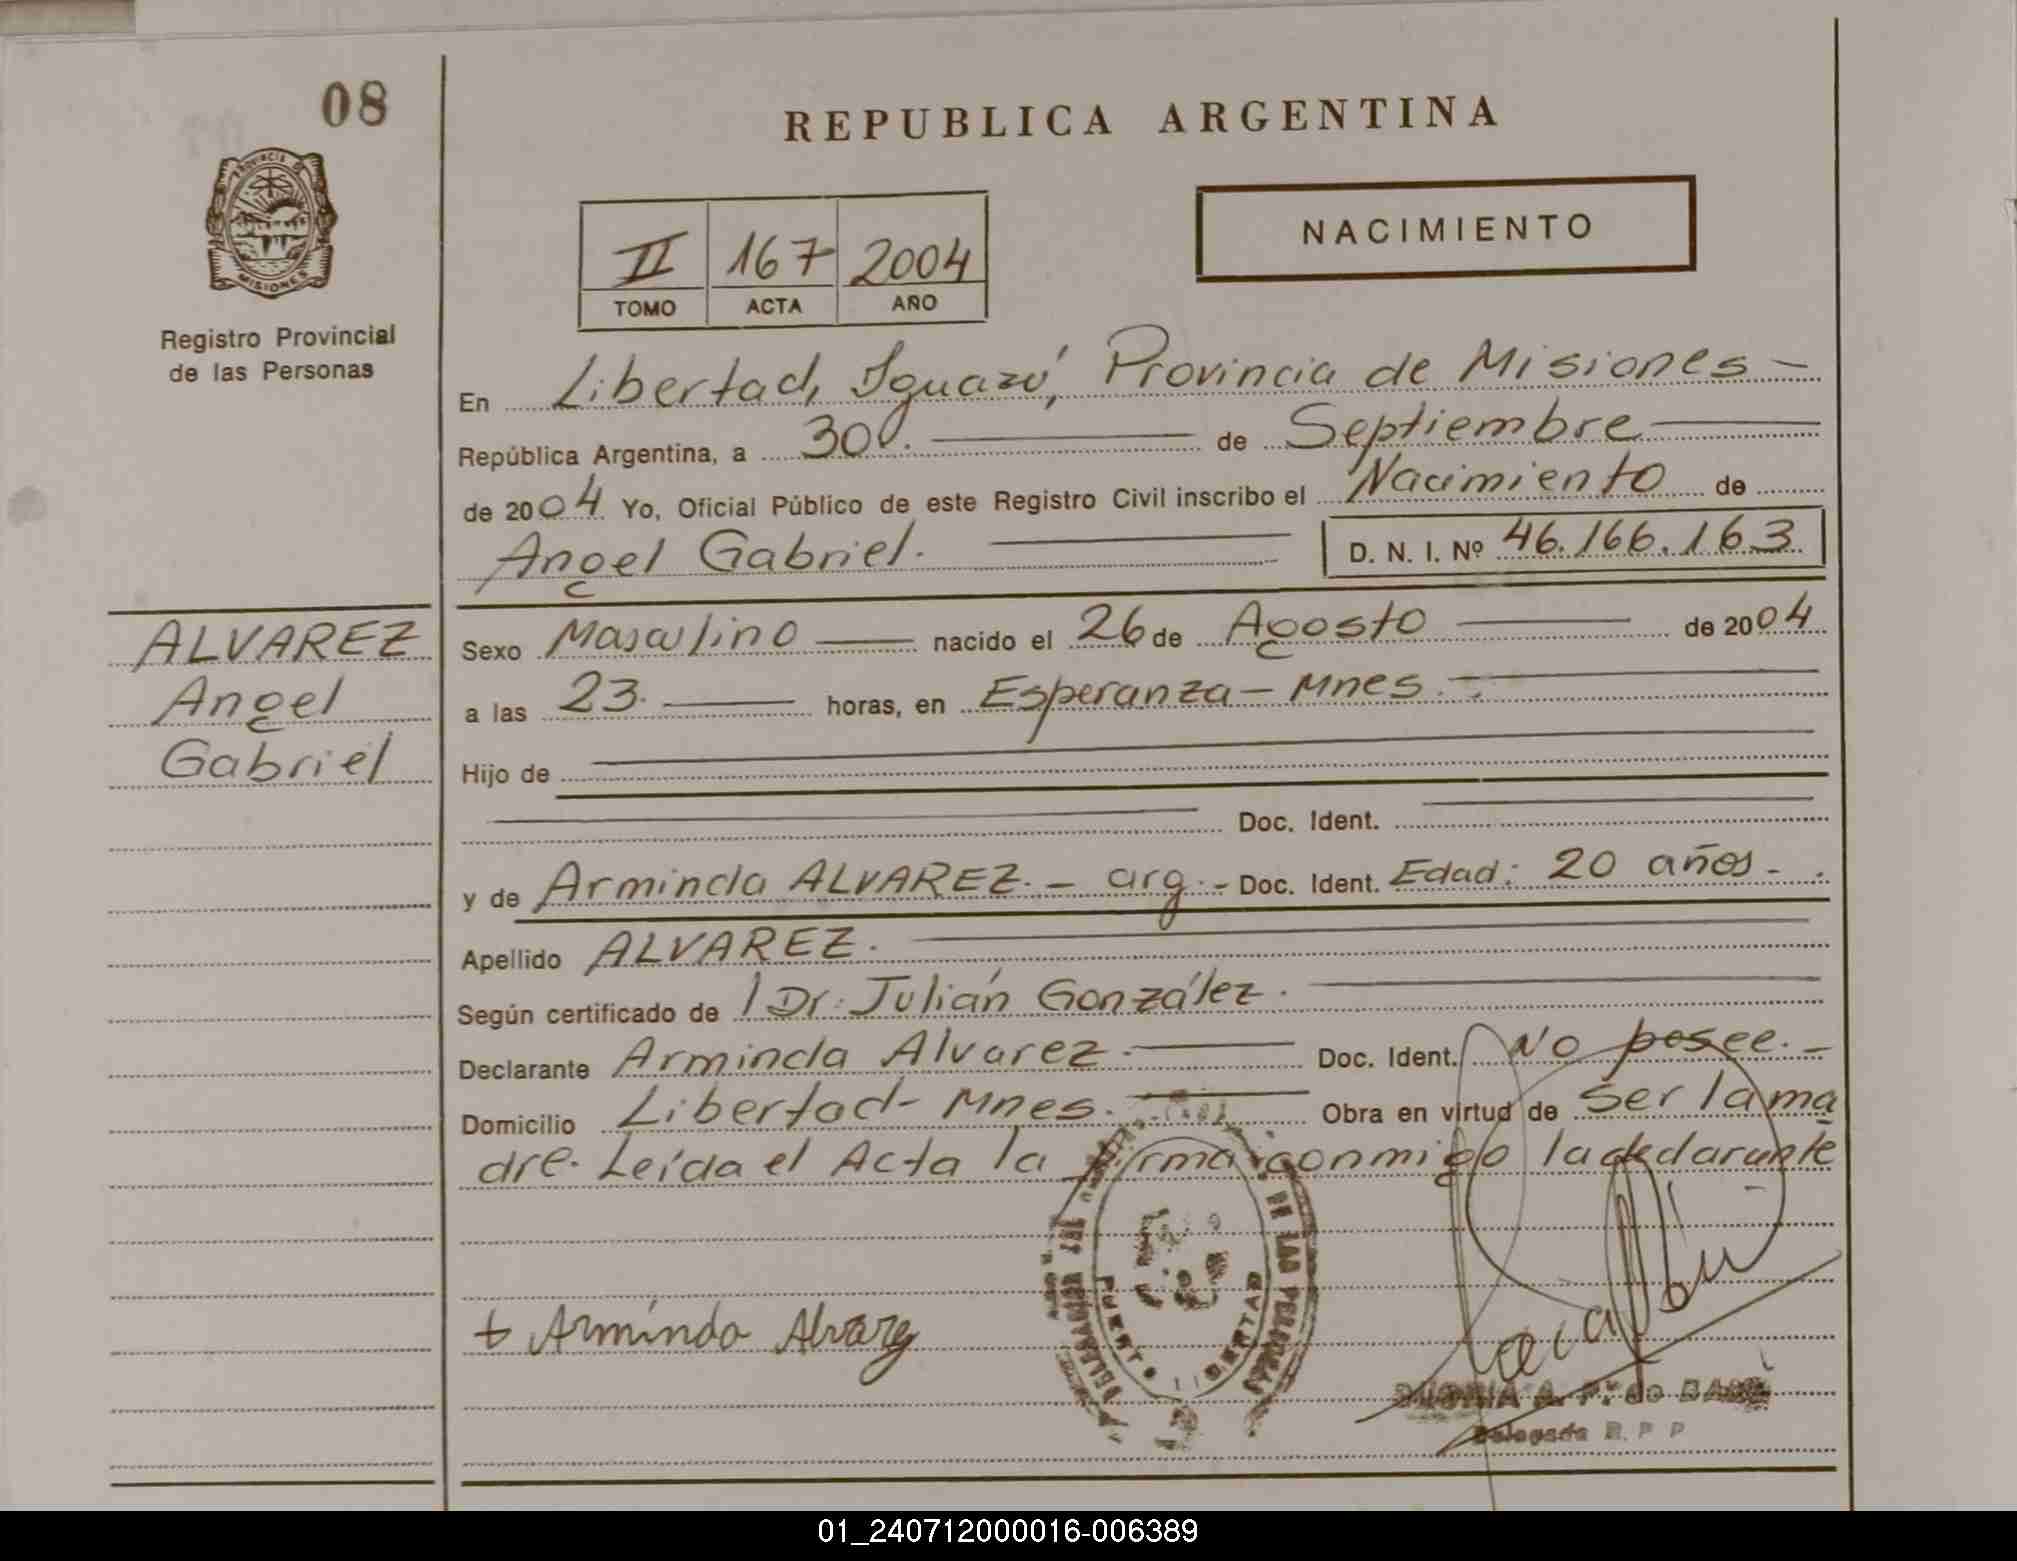 08
REPUBLICA ARGENTINA
PROVINCIA DE
MISIONES
Registro Provincial
de las Personas
II 167 2004
TOMO ACTA AÑO
NACIMIENTO
En Libertad, Iguazú, Provincia de Misiones -
República Argentina, a 30. de Septiembre
de 2004 Yo, Oficial Público de este Registro Civil inscribo el Nacimiento de
Angel Gabriel. D. N. I. Nº 46.166.163
ALVAREZ
Angel
Gabriel
Sexo Masculino nacido el 26 de Agosto de 2004
a las 23. horas, en Esperanza - Mnes.
Hijo de
Doc. Ident.
y de Arminda ALVAREZ. - arg. - Doc. Ident. Edad: 20 años -.
Apellido ALVAREZ.
Según certificado de / Dr. Julián González.
Declarante Arminda Alvarez. Doc. Ident. No posee. -
Domicilio Libertad - Mnes. Obra en virtud de ser la ma
dre. Leída el Acta la firma conmigo la declarante
+ Arminda Alvarez
DE LAS PERSONAS
PUERTO LIBERTAD
A. P. de
Delegada R. P. P
01_240712000016-006389